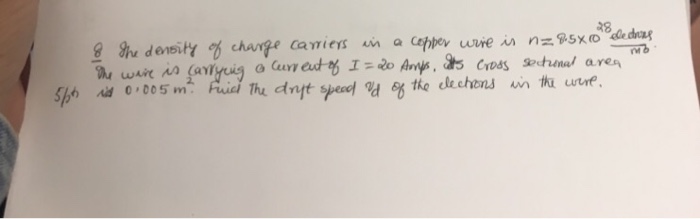 8 The density of charge carriers in a copper wire is n=8.5x10^28 electrons/m3.
The wire is carrying a current of I = 20 Amps, Its cross sectional area
5pts is 0.005 m². Find the drift speed vd of the electrons in the wire.